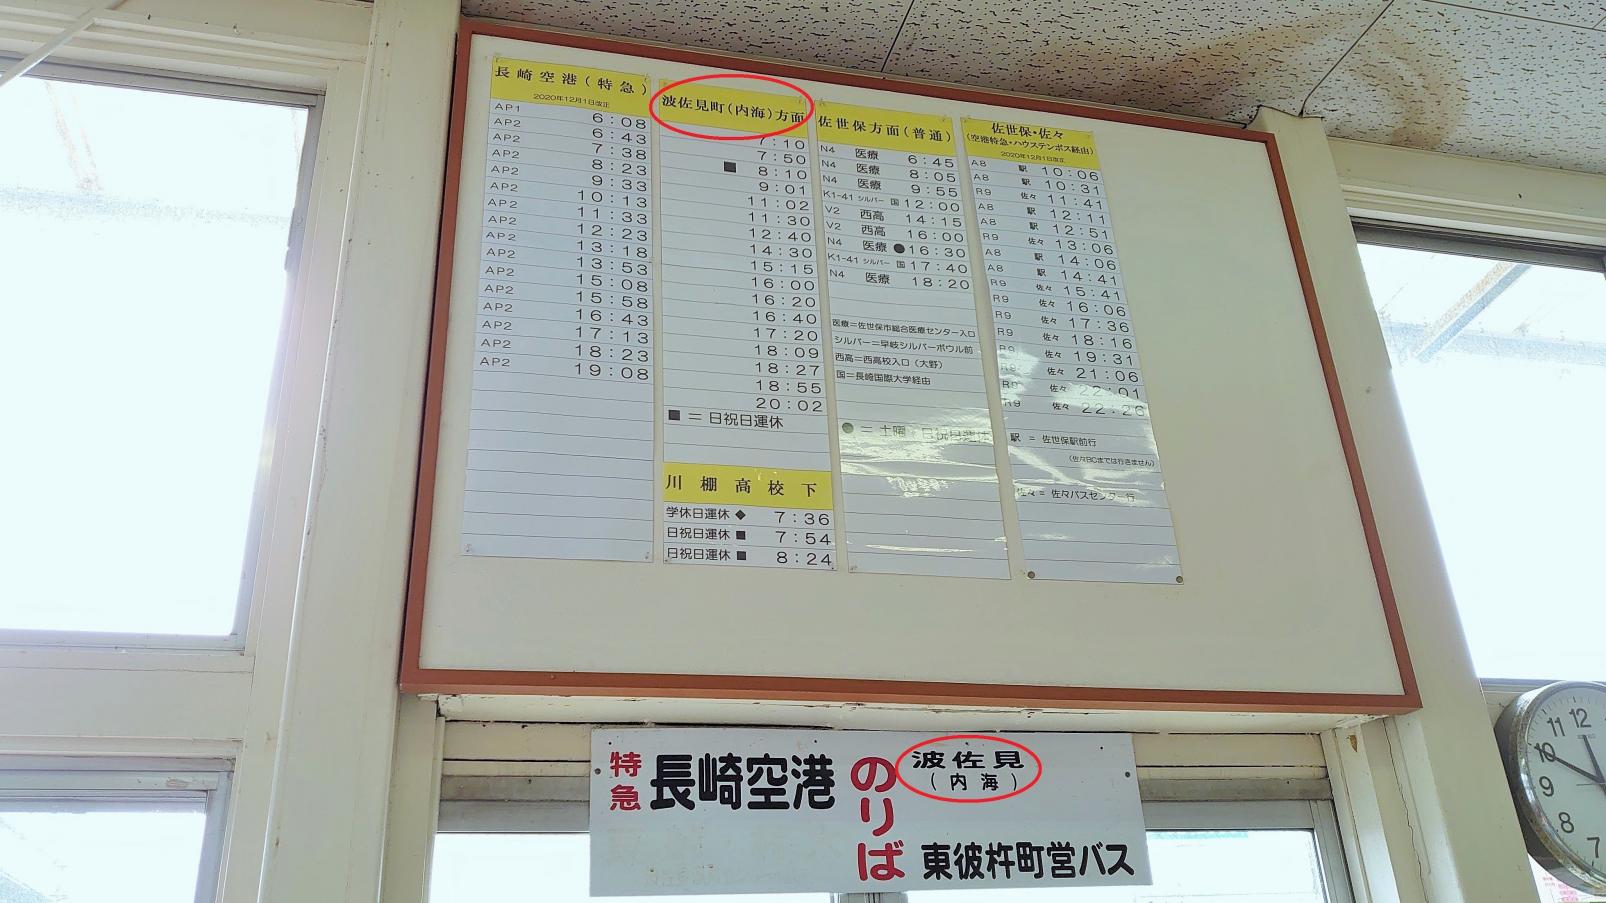 長崎空港(特急)
2020年12月1日改正
AP1 6:08
AP2 6:43
AP2 7:38
AP2 8:23
AP2 9:33
AP2 10:13
AP2 11:33
AP2 12:23
AP2 13:18
AP2 13:53
AP2 15:08
AP2 15:58
AP2 16:43
AP2 17:13
AP2 18:23
AP2 19:08
波佐見町(内海)方面
7:10
7:50
■ 8:10
9:01
11:02
11:30
12:40
14:30
15:15
16:00
16:20
16:40
17:20
18:09
18:27
18:55
20:02
■=日祝日運休
川棚高校下
学休日運休◆ 7:36
日祝日運休■ 7:54
日祝日運休■ 8:24
佐世保方面(普通)
N4 医療 6:45
N4 医療 8:05
N4 医療 9:55
K1-41 シルバー 国 12:00
V2 西高 14:15
V2 西高 16:00
N4 医療 ●16:30
K1-41 シルバー 国 17:40
N4 医療 18:20
医療=佐世保市総合医療センター入口
シルバー=早岐シルバーボウル前
西高=西高校入口(大野)
国=長崎国際大学経由
●=土曜・日祝日運休
佐世保・佐々
(空港特急・ハウステンボス経由)
2020年12月1日改正
A8 駅 10:06
A8 駅 10:31
R9 佐々 11:41
A8 駅 12:11
A8 駅 12:51
R9 佐々 13:06
A8 駅 14:06
A8 駅 14:41
R9 佐々 15:41
R9 佐々 16:06
R9 佐々 17:36
R9 佐々 18:16
R9 佐々 19:31
R9 佐々 21:06
R9 佐々 22:01
R9 佐々 22:26
駅 = 佐世保駅前行
(佐々BCまでは行きません)
佐々= 佐々バスセンター行
特急 長崎空港 のりば
波佐見
(内海)
東彼杵町営バス
12
11
10
9
8
7